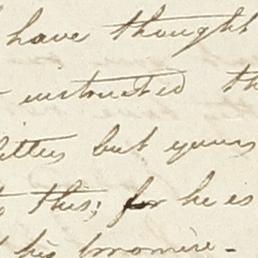 have thought
instructed th
letters but yours
this; for he is
his promise -